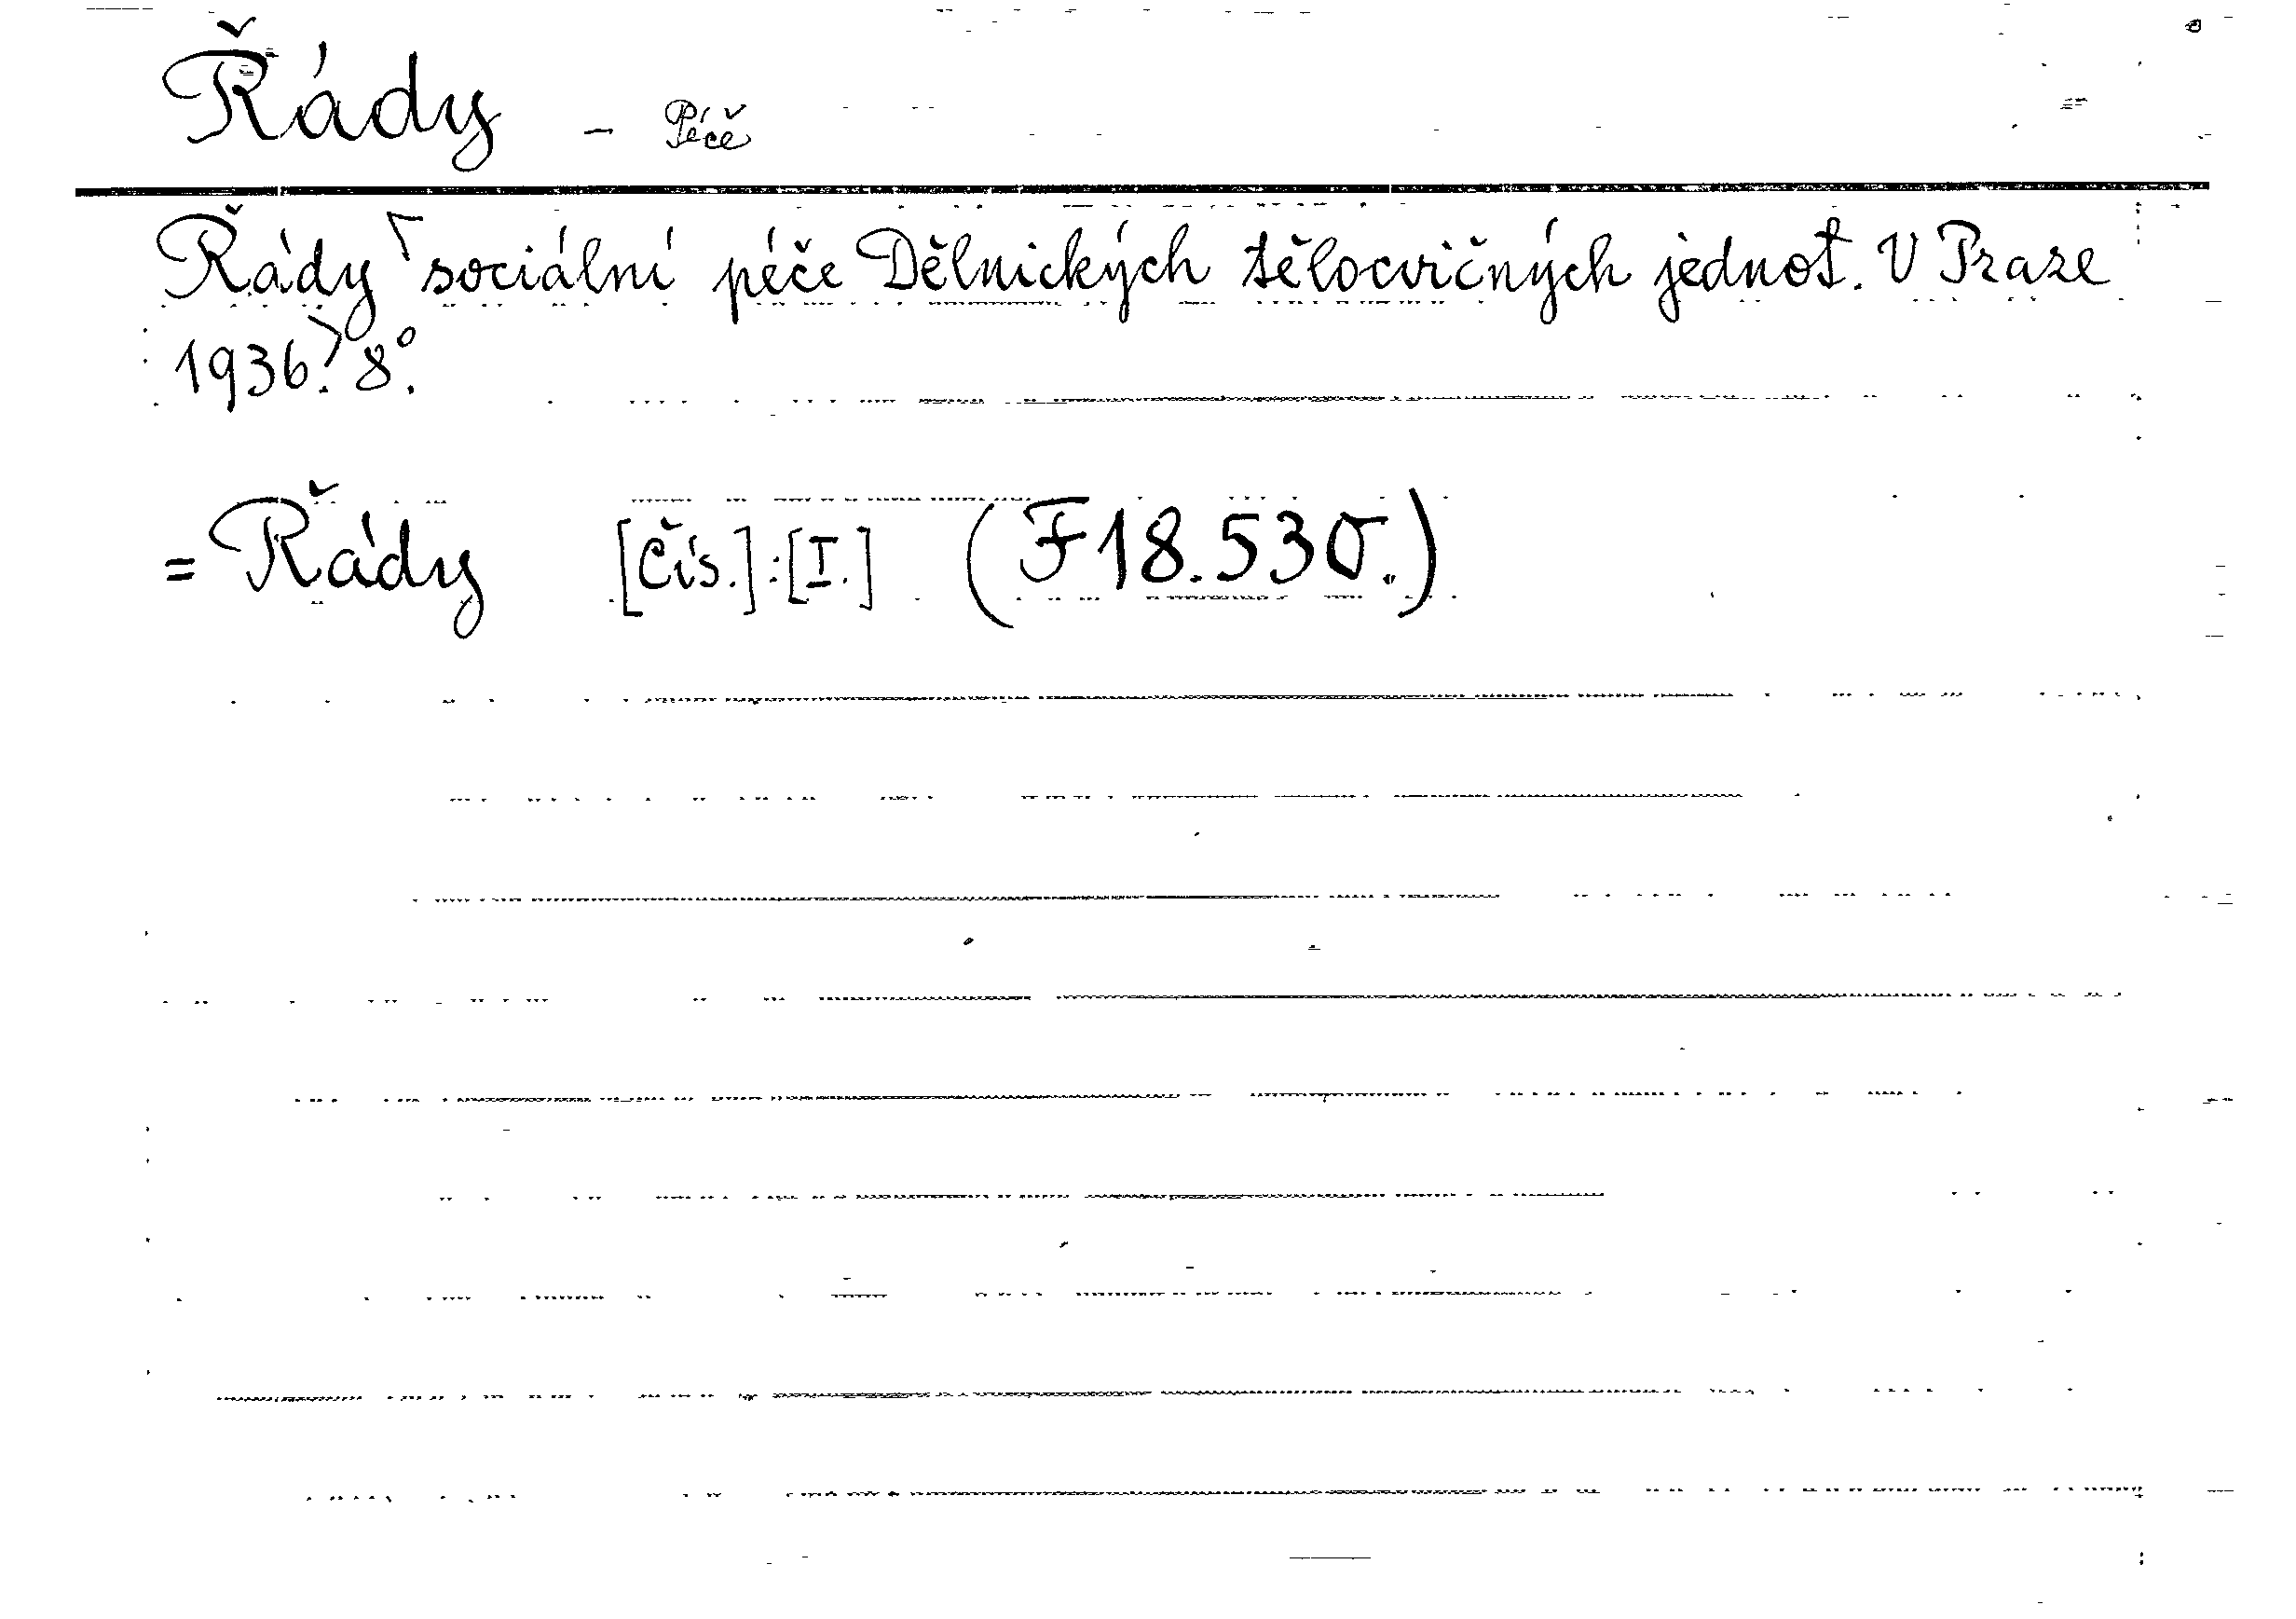 Řády – Péče
Řády sociální péče Dělnických tělocvičných jednot. V Praze
1936. 8°.
= Řády [Čís.]:[I.] (F 18.530.)